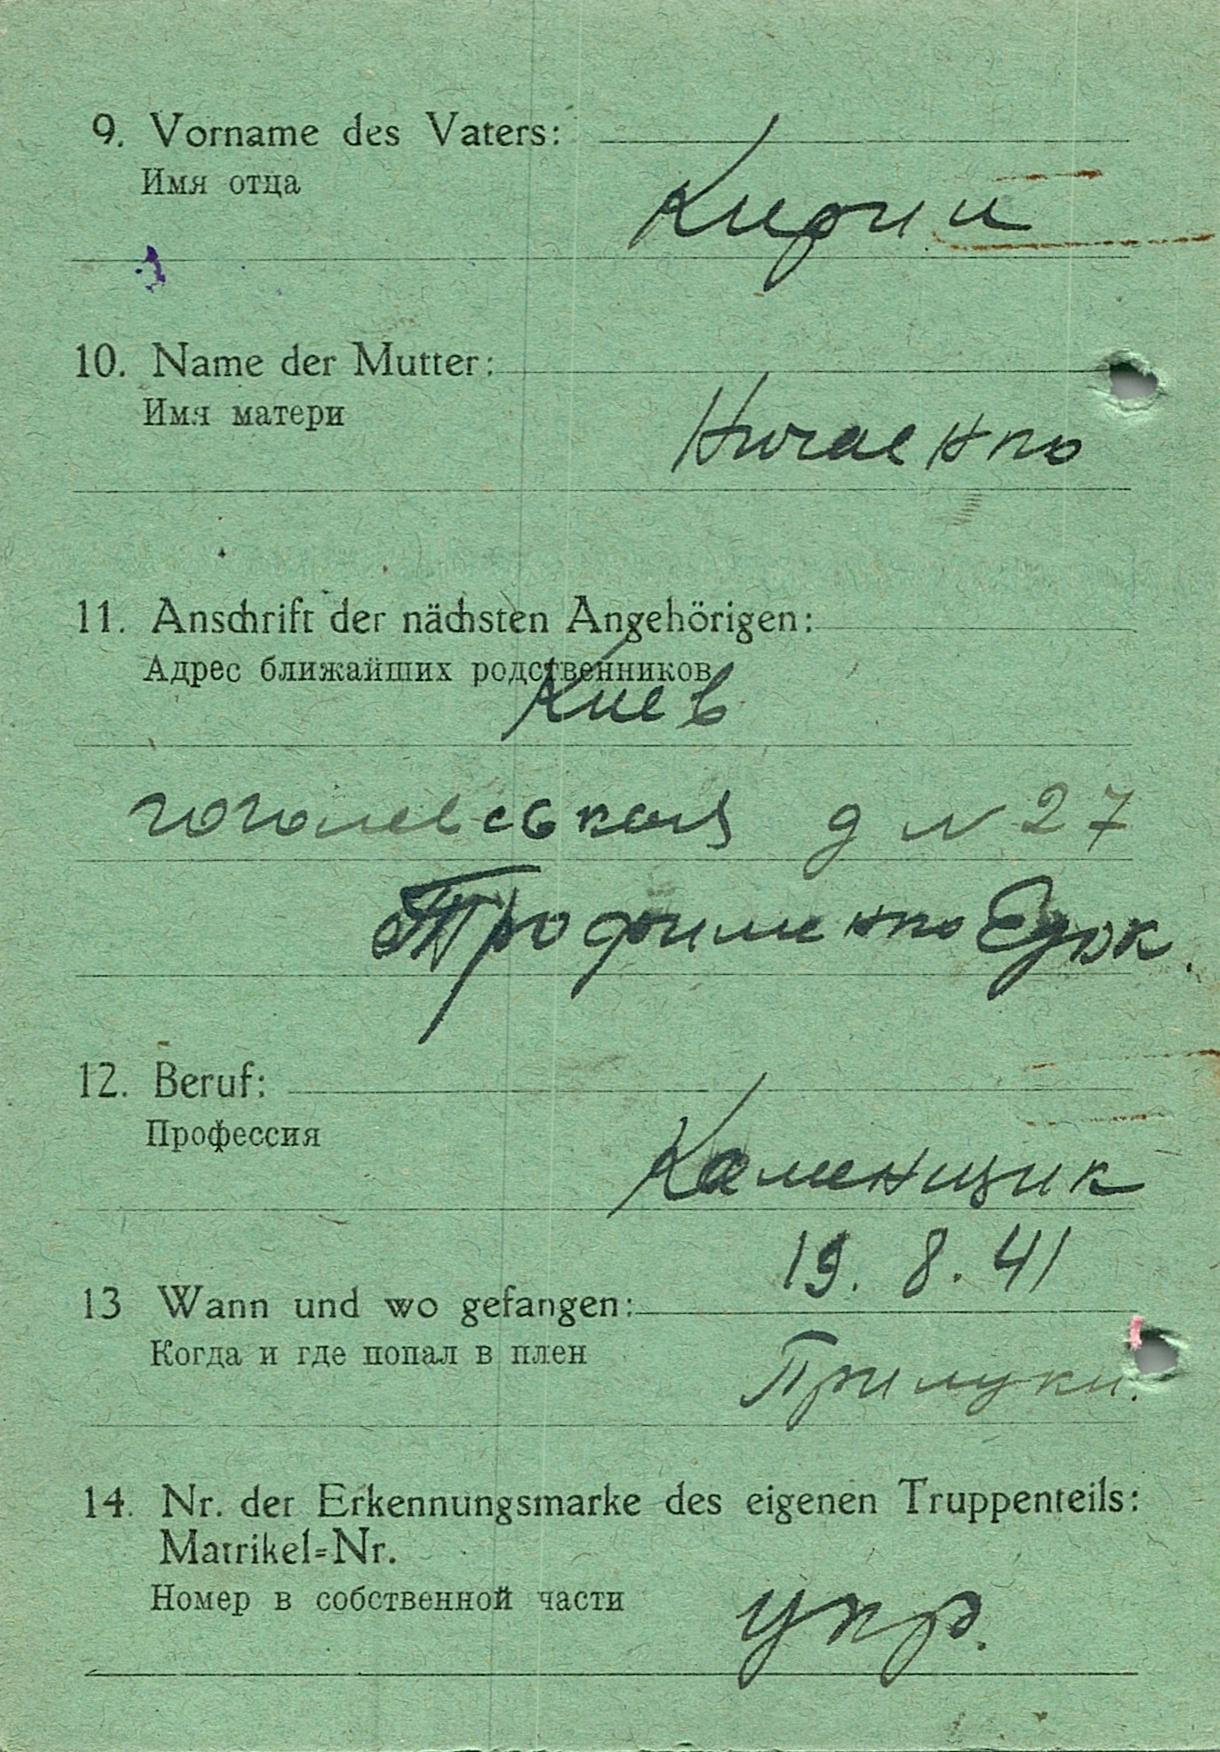 9. Vorname des Vaters:
Имя отца
Кирии
10. Name der Mutter:
Имя матери
Ничаенко
11. Anschrift der nächsten Angehörigen:
Адрес ближайших родственников
Киев
гоголевськая д N 27
Трофименко
12. Beruf:
Профессия
Каменщик
19. 8. 41
13 Wann und wo gefangen:
Когда и где попал в плен
Прилуки.
14. Nr. der Erkennungsmarke des eigenen Truppenteils:
Matrikel=Nr.
Номер в собственной части
укр.